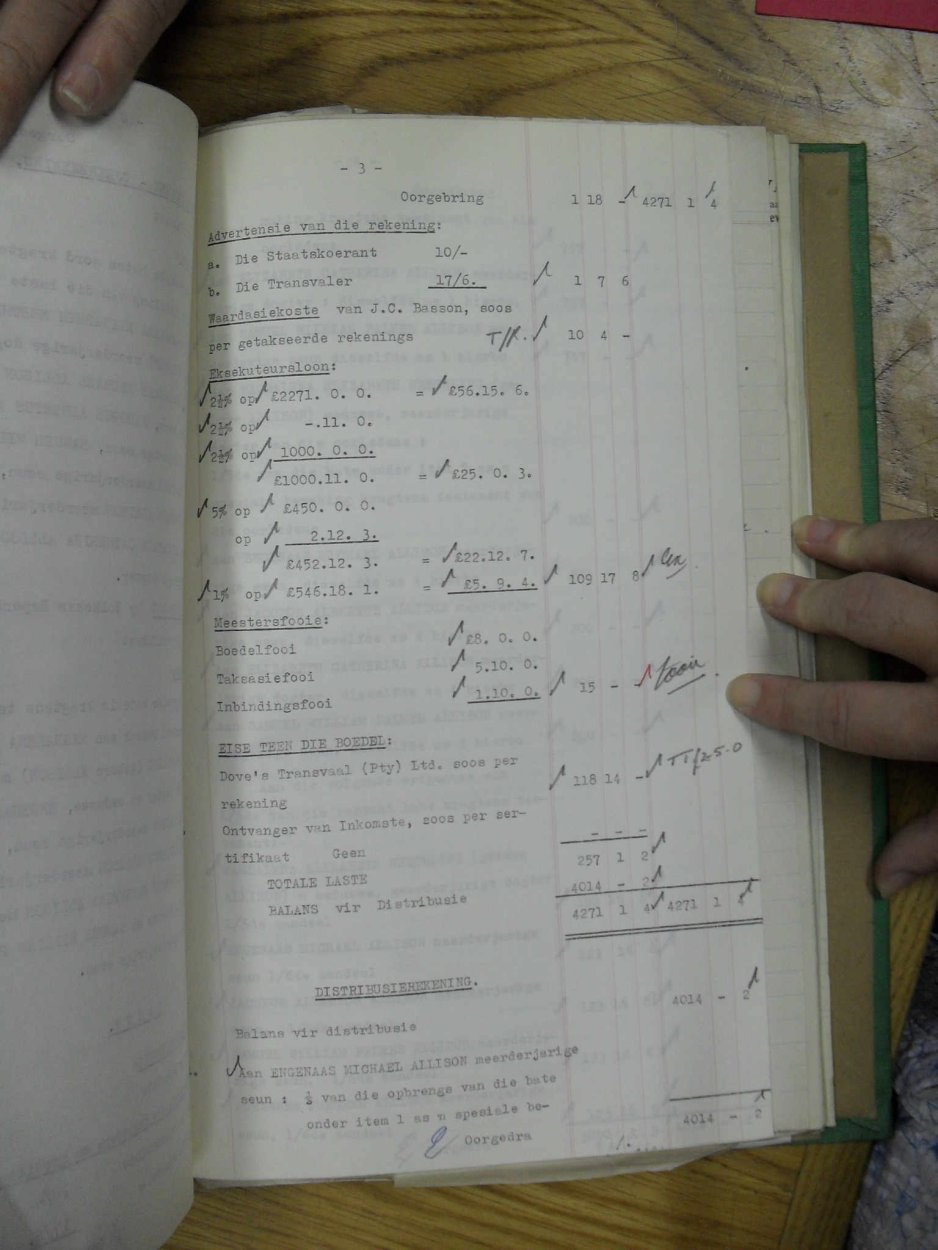 - 3 -
Oorgebring 1 18 - 4271 1 4
Advertensie van die rekening:
a. Die Staatskoerant 10/-
b. Die Transvaler 17/6. 1 7 6
Waardasiekoste van J.C. Basson, soos
per getakseerde rekenings T/R. 10 4 -
Eksekuteursloon:
2½% op £2271. 0. 0. = £56.15. 6.
2½% op -.11. 0.
2½% op 1000. 0. 0.
£1000.11. 0. = £25. 0. 3.
5% op £450. 0. 0.
op 2.12. 3.
£452.12. 3. = £22.12. 7.
1% op £546.18. 1. = £5. 9. 4. 109 17 8
Meestersfooie:
Boedelfooi £8. 0. 0.
Taksasiefooi 5.10. 0.
Inbindingsfooi 1.10. 0. 15 - - fooie
EISE TEEN DIE BOEDEL:
Dove's Transvaal (Pty) Ltd. soos per
rekening 118 14 -
Ontvanger van Inkomste, soos per ser-
tifikaat Geen - - -
TOTALE LASTE 257 1 2
BALANS vir Distribusie 4014 - 2
4271 1 4 4271 1 4
DISTRIBUSIEREKENING.
Balans vir distribusie 4014 - 2
Aan ENGENAAS MICHAEL ALLISON meerderjarige
seun : ⅓ van die opbrengs van die bate
onder item 1 as n spesiale be-
Oorgedra 4014 - 2